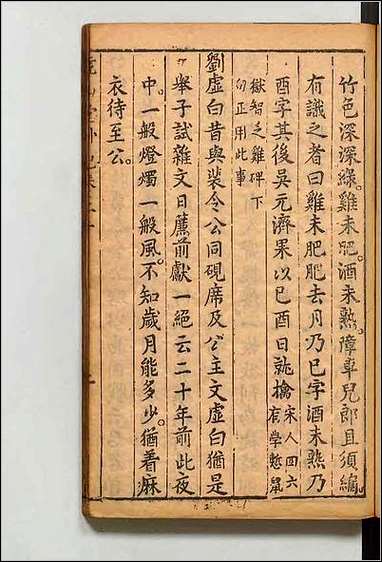 竹色深深緑。雞未肥。酒未熟。障車兒郎且須縮。
有識之者曰雞未肥肥去月乃巳字酒未熟乃
酉字其後吳元濟果以巳酉日就擒宋人四六
有學慙鼠
獄智乏雞碑下
句正用此事
劉虛白昔與裴令公同硯席及公主文虛白猶是
舉子試雜文日薦前獻一絕云二十年前此夜
中。一般燈燭一般風。不知歲月能多少。猶着麻
衣待至公。